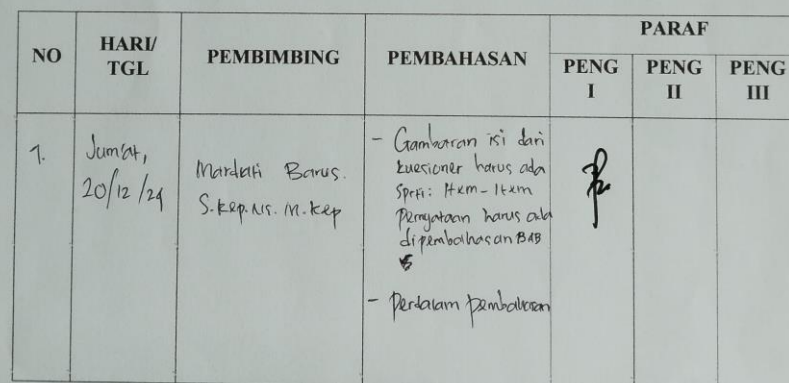 NO
HARI/
TGL
PEMBIMBING
PEMBAHASAN
PARAF
PENG
I
PENG
II
PENG
III
1.
Jumat,
20/12/24
Mardiati Barus.
S.Kep.Ns.M.Kep
- Gambaran isi dari
kuesioner harus ada
Sprti: Item-Item
Pernyataan harus ada
dipembahasan BAB
5
- Perdalam pembahasan